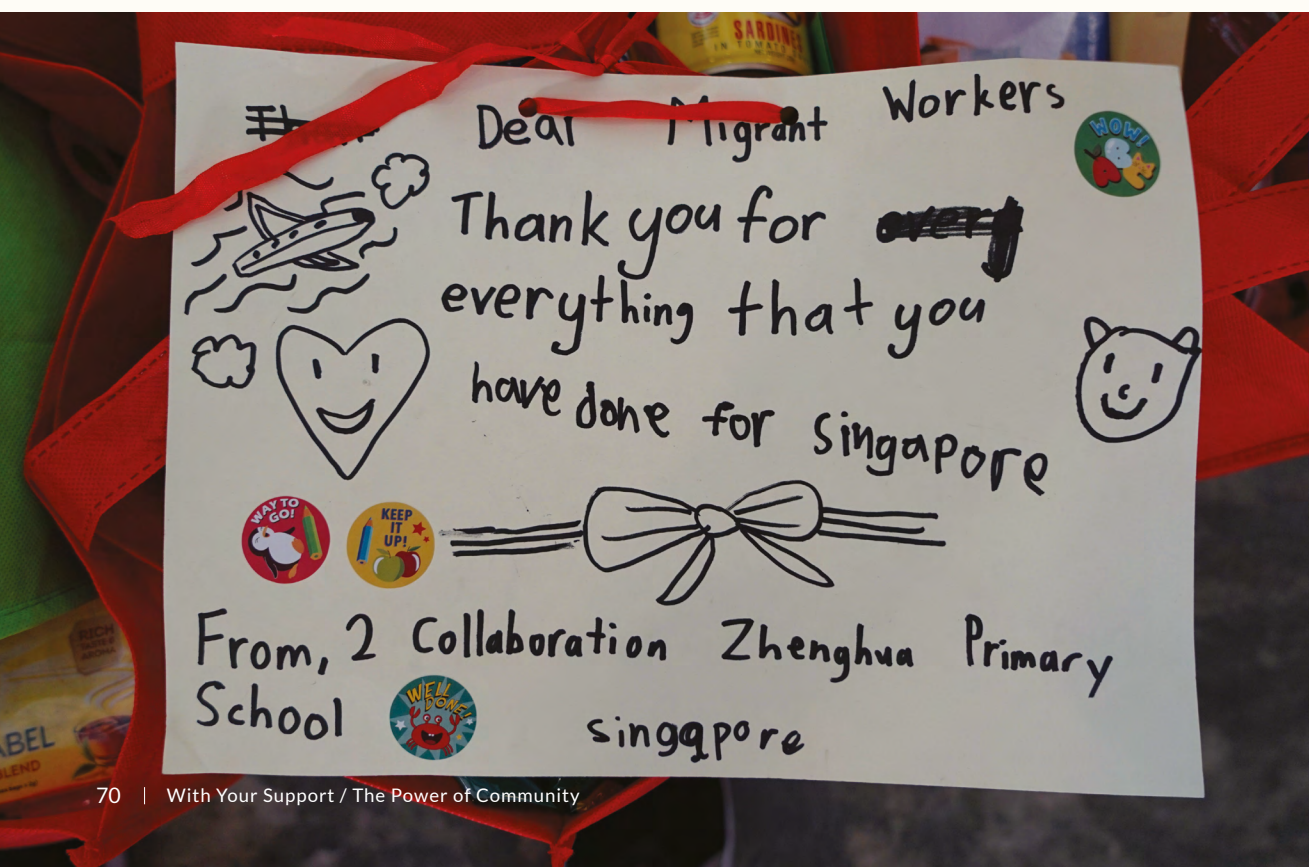 SARDINES
IN TOMATO
Dear Migrant Workers
WOW!
Thank you for every
everything that you
have done for singapore
WAY TO
GO!
KEEP
IT
UP!
From, 2 Collaboration Zhenghua Primary
School
WELL
DONE!
singapore
RICH
TASTE &
AROMA
ABEL
BLEND
70 | With Your Support / The Power of Community